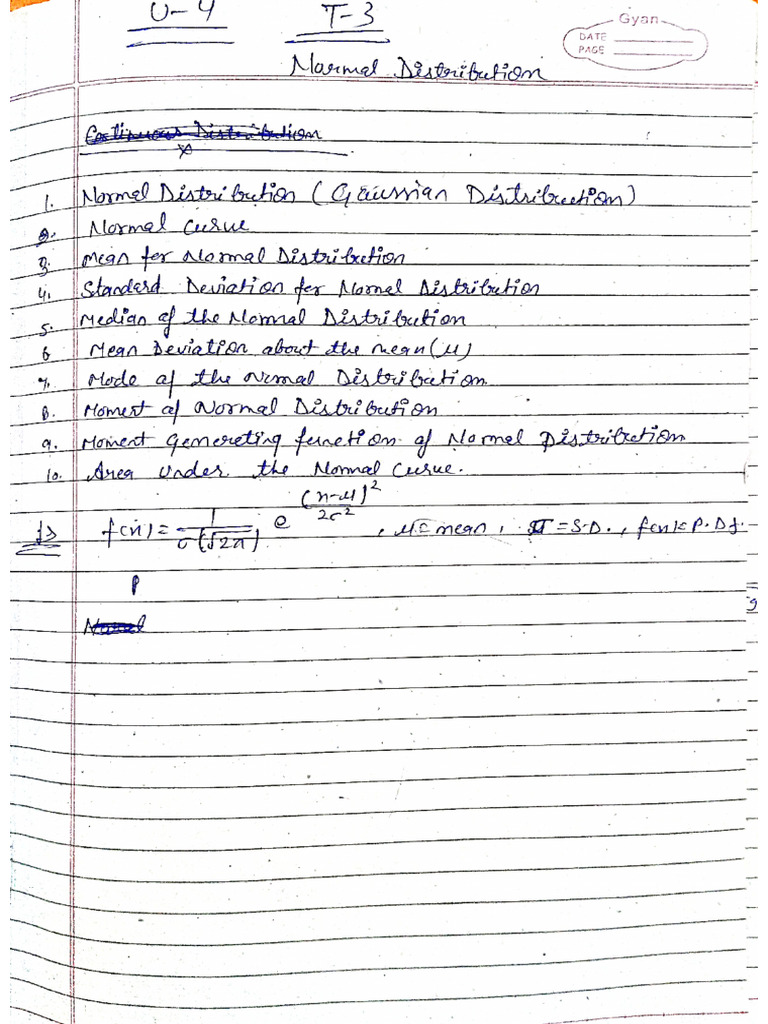 U-4 T-3
Gyan
DATE
PAGE
Normal Distribution
Continuous Distribution
1. Normal Distribution (Gaussian Distribution)
2. Normal Curve
3. Mean for Normal Distribution
4. Standard Deviation for Normal Distribution
5. Median of the Normal Distribution
6 Mean Deviation about the mean (μ)
7. Mode of the Normal Distribution
8. Moment of Normal Distribution
9. Moment Genereting function of Normal Distribution
10. Area under the Normal Curve.
1> f(x) = 1/σ(√2π) e^(x-μ)²/2σ² , μ = mean, σ = S.D., f(x) = P.D.f.
P
Normal